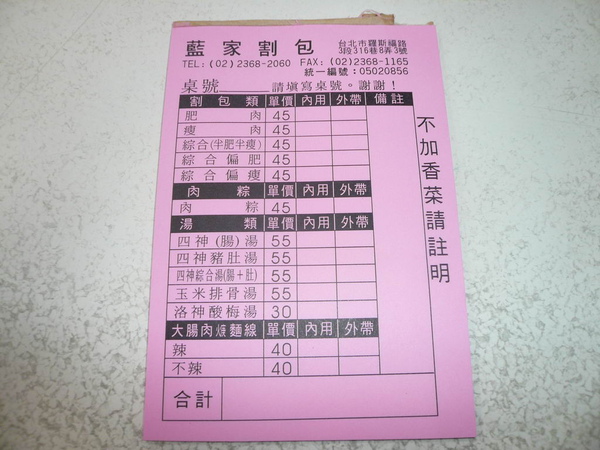 藍家割包 台北市羅斯福路
3段316巷8弄3號
TEL:(02)2368-2060 FAX:(02)2368-1165
統一編號:05020856
桌號 請填寫桌號。謝謝!
割包類 單價 內用 外帶 備註
肥肉 45
瘦肉 45
綜合(半肥半瘦) 45
綜合偏肥 45
綜合偏瘦 45
肉粽 單價 內用 外帶
肉粽 45
湯類 單價 內用 外帶
四神(腸)湯 55
四神豬肚湯 55
四神綜合湯(腸+肚) 55
玉米排骨湯 55
洛神酸梅湯 30
大腸肉焿麵線 單價 內用 外帶
辣 40
不辣 40
合計
不加香菜請註明